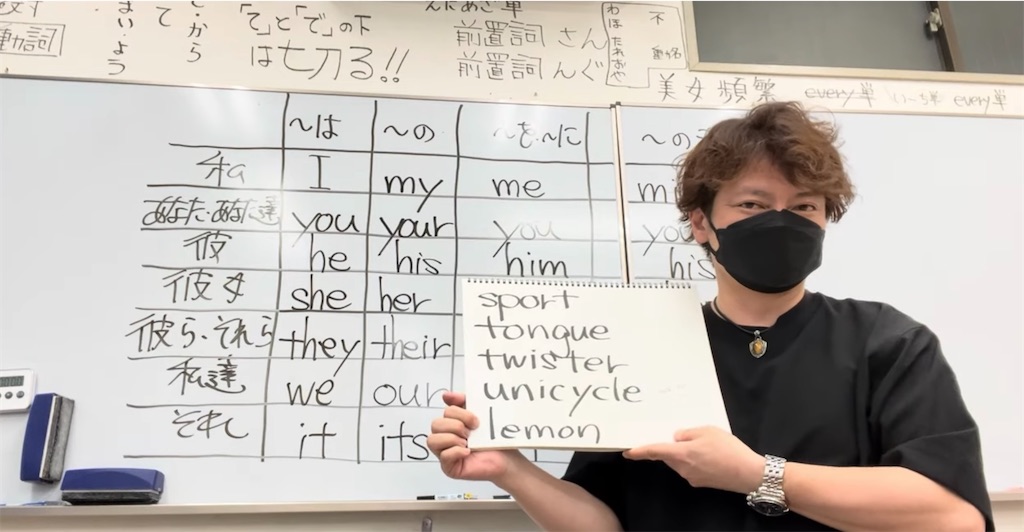 「て」と「で」の下
は切る!!
動詞
て
と・から
まい・よう
前置詞 さん
前置詞 んぐ
わほたれおや
不
美女頻繁 every単 every単
~は ~の ~を、~に
私 I my me
あなた・あなた達 you your you you
彼 he his him his
彼女 she her
彼ら・それら they their
私達 we our
それ it its
sport
tongue
twister
unicycle
lemon